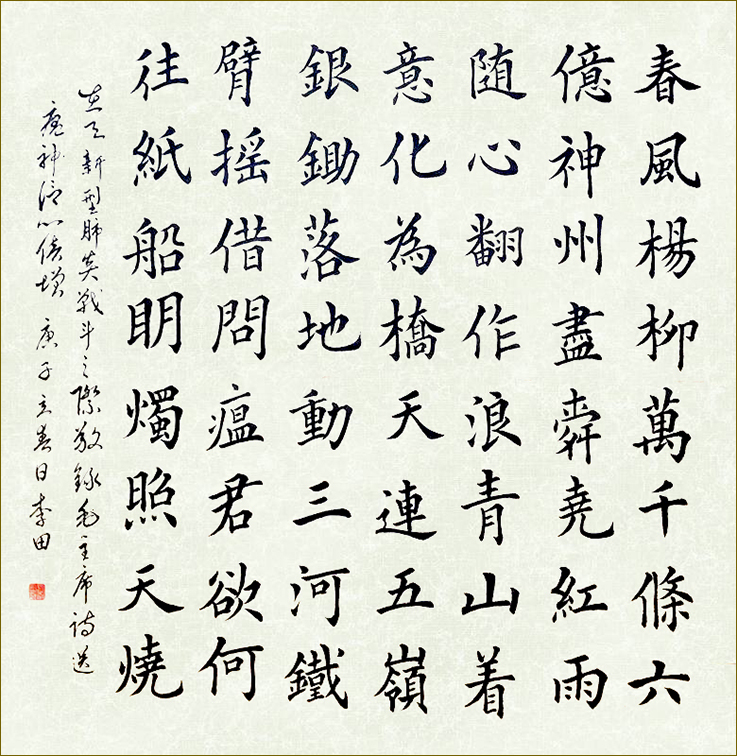 春風楊柳萬千條六
億神州盡舜堯紅雨
随心翻作浪青山着
意化為橋天連五嶺
銀鋤落地動三河鐵
臂摇借問瘟君欲何
往紙船明燭照天燒
新型肺炎戰斗之際敬錄毛主席詩送
瘟神信心倍增庚子立春日李田